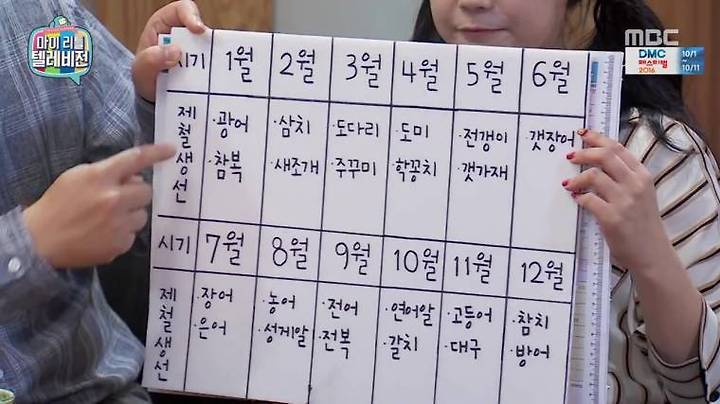 마이 리틀
텔레비전
MBC
DMC
페스티벌
2016
10/1
~
10/11
시기 1월 2월 3월 4월 5월 6월
제철생선
·광어 ·삼치 ·도다리 ·도미 ·전갱이 ·갯장어
·참복 ·새조개 ·주꾸미 ·학꽁치 ·갯가재
시기 7월 8월 9월 10월 11월 12월
제철생선
·장어 ·농어 ·전어 ·연어알 ·고등어 ·참치
·은어 ·성게알 ·전복 ·갈치 ·대구 ·방어